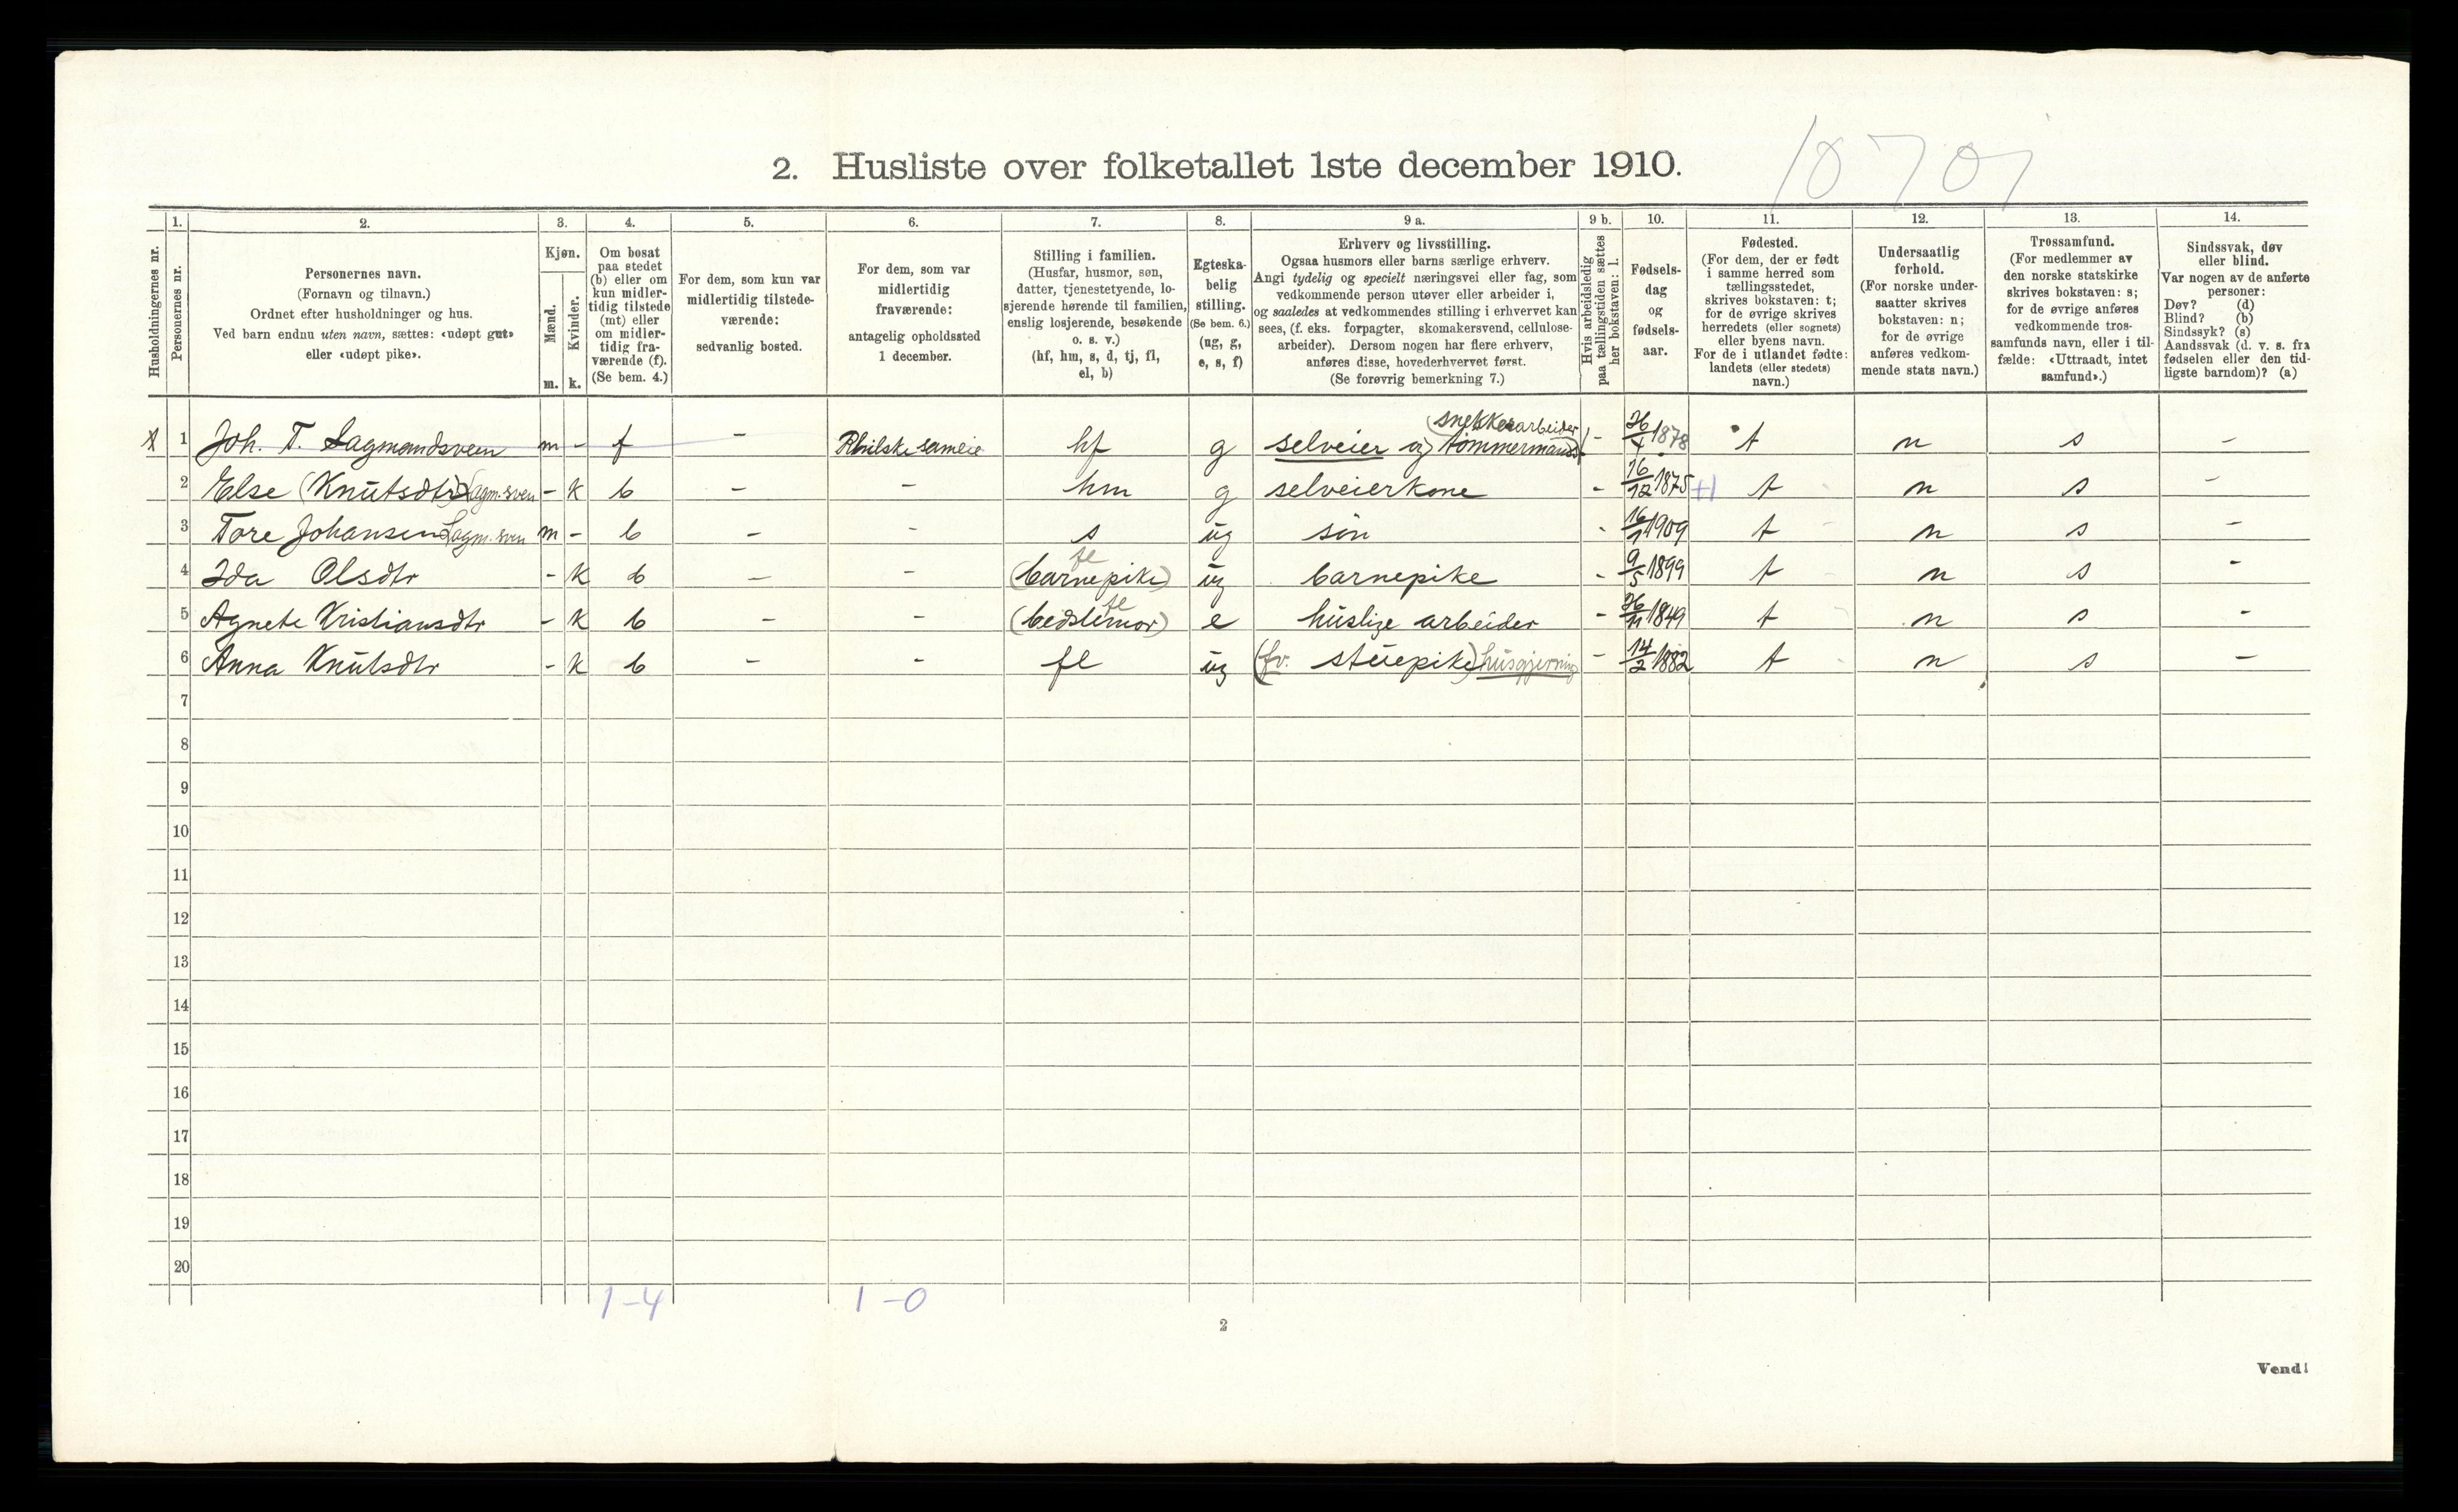 10 70
2. Husliste over folketallet 1ste december 1910.
1. 2. 3. 4. 5. 6. 7. 8. 9 a. 9 b. 10. 11. 12. 13. 14.
Husholdningernes nr.
Personernes nr.
Personernes navn.
(Fornavn og tilnavn.)
Ordnet efter husholdninger og hus.
Ved barn endnu uten navn, sættes: «udøpt gut»
eller «udøpt pike».
Kjøn.
Mænd.
m.
Kvinder.
k.
Om bosat
paa stedet
(b) eller om
kun midler-
tidig tilstede
(mt) eller
om midler-
tidig fra-
værende (f).
(Se bem. 4.)
For dem, som kun var
midlertidig tilstede-
værende:
sedvanlig bosted.
For dem, som var
midlertidig
fraværende:
antagelig opholdssted
1 december.
Stilling i familien.
(Husfar, husmor, søn,
datter, tjenestetyende, lo-
sjerende hørende til familien,
enslig losjerende, besøkende
o. s. v.)
(hf, hm, s, d, tj, fl,
el, b)
Egteska-
belig
stilling.
(Se bem. 6.)
(ug, g,
e, s, f)
Erhverv og livsstilling.
Ogsaa husmors eller barns særlige erhverv.
Angi tydelig og specielt næringsvei eller fag, som
vedkommende person utøver eller arbeider i,
og saaledes at vedkommendes stilling i erhvervet kan
sees, (f. eks. forpagter, skomakersvend, cellulose-
arbeider). Dersom nogen har flere erhverv,
anføres disse, hovederhvervet først.
(Se forøvrig bemerkning 7.)
Hvis arbeidsledig
paa tællingstiden sættes
her bokstaven: l.
Fødsels-
dag
og
fødsels-
aar.
Fødested.
(For dem, der er født
i samme herred som
tællingsstedet,
skrives bokstaven: t;
for de øvrige skrives
herredets (eller sognets)
eller byens navn.
For de i utlandet fødte:
landets (eller stedets)
navn.)
Undersaatlig
forhold.
(For norske under-
saatter skrives
bokstaven: n;
for de øvrige
anføres vedkom-
mende stats navn.)
Trossamfund.
(For medlemmer av
den norske statskirke
skrives bokstaven: s;
for de øvrige anføres
vedkommende tros-
samfunds navn, eller i til-
fælde: «Uttraadt, intet
samfund».)
Sindssvak, døv
eller blind.
Var nogen av de anførte
personer:
Døv? (d)
Blind? (b)
Sindssyk? (s)
Aandssvak (d. v. s. fra
fødselen eller den tid-
ligste barndom)? (a)
snekkerarbeider
1 Joh. T. Lagmandsveen m - f - sameie hf g selveier og tømmermand - 26/4 1878 t n s -
2 Else (Knutsdtr) Lagm.sven - k b - hm g selveierkone - 16/12 1875 +1 t n s -
3 Tore Johansen Lagm.sven m - b - - s ug søn - 16/1 1909 t n s -
fl
4 Ida Olsdtr - k b - - (barnepike) ug barnepike - 9/5 1899 t n s -
fl
5 Agnete Kristiansdtr - k b - - (bedstemor) e huslige arbeider - 26/11 1849 t n s -
6 Anna Knutsdtr - k b - - fl ug (fv. stuepike) husgjerning - 14/2 1882 t n s -
7
8
9
10
11
12
13
14
15
16
17
18
19
20
1-4 1-0
2
Vend!